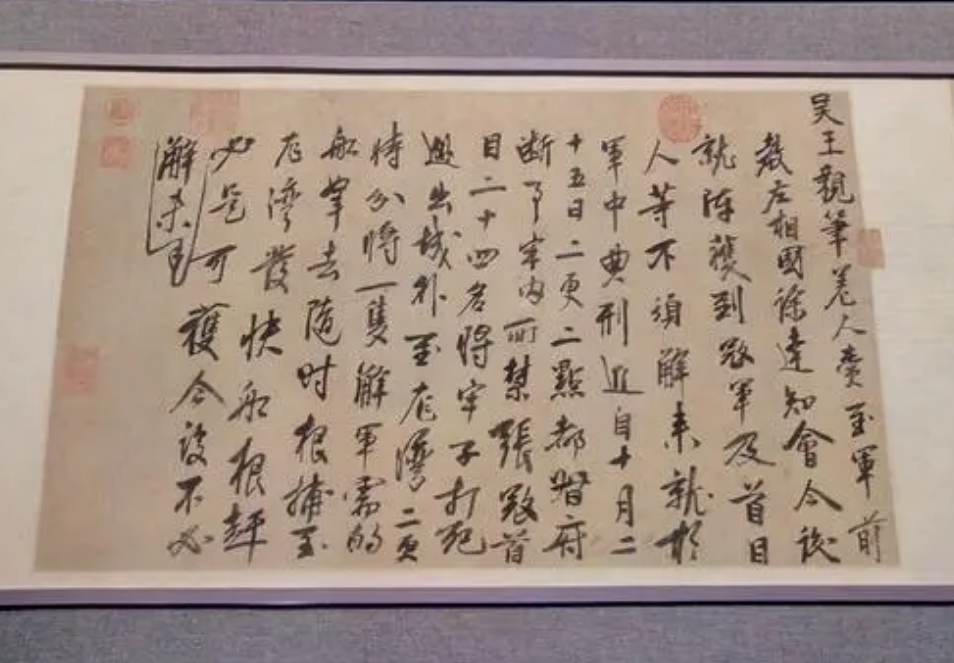 吴王親筆差人賫至軍前
教左相國徐達知會今後
就陣獲到寇軍及首目
人等不須解来就於
軍中典刑近自十月二
十五日二更二點都督府
断事牢内所禁張寇首
目二十四名將牢子打死
越出城外至龙灣二更
時分將一隻解軍需的
船拏去随时根捕至
龙灣發快船根趕
必是可獲今後不必
解来